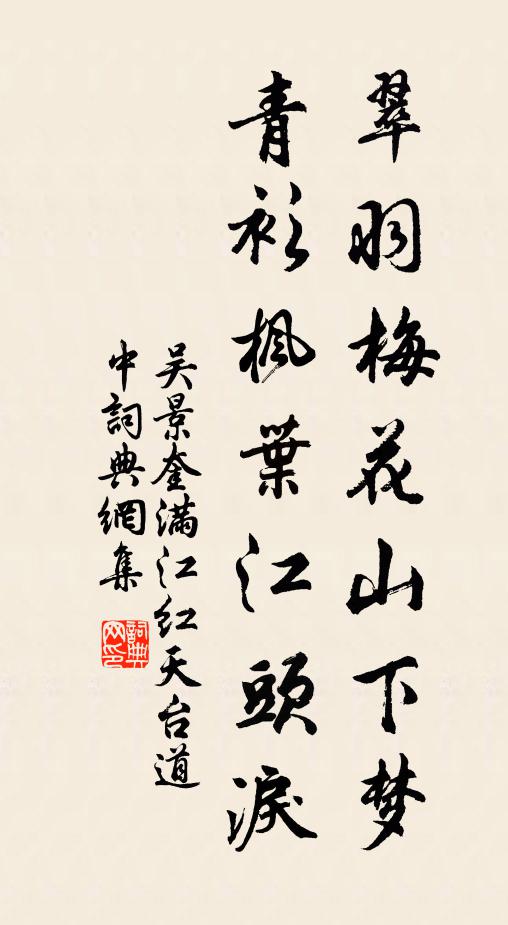 翠羽梅花山下梦
青衫枫葉江頭淚
吴景奎滿江红天台道
中詞典網集
詞典网印